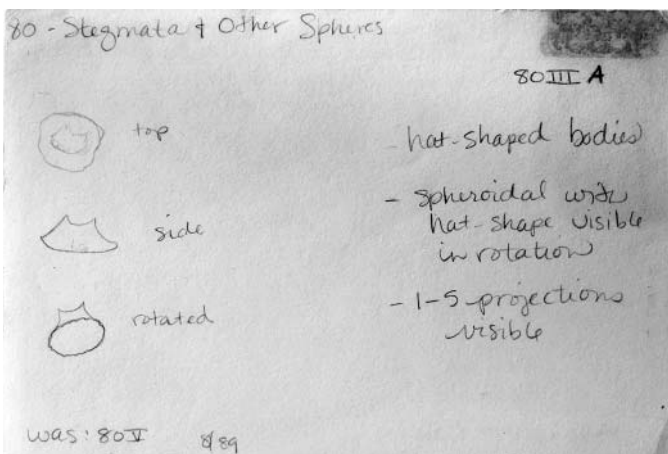 80 - Stegmata & Other Spheres
80 III A
top
- hat-shaped bodies
- spheroidal with
hat-shape visible
in rotation
side
- 1-5 projections
visible
rotated
was: 80 V 8/89